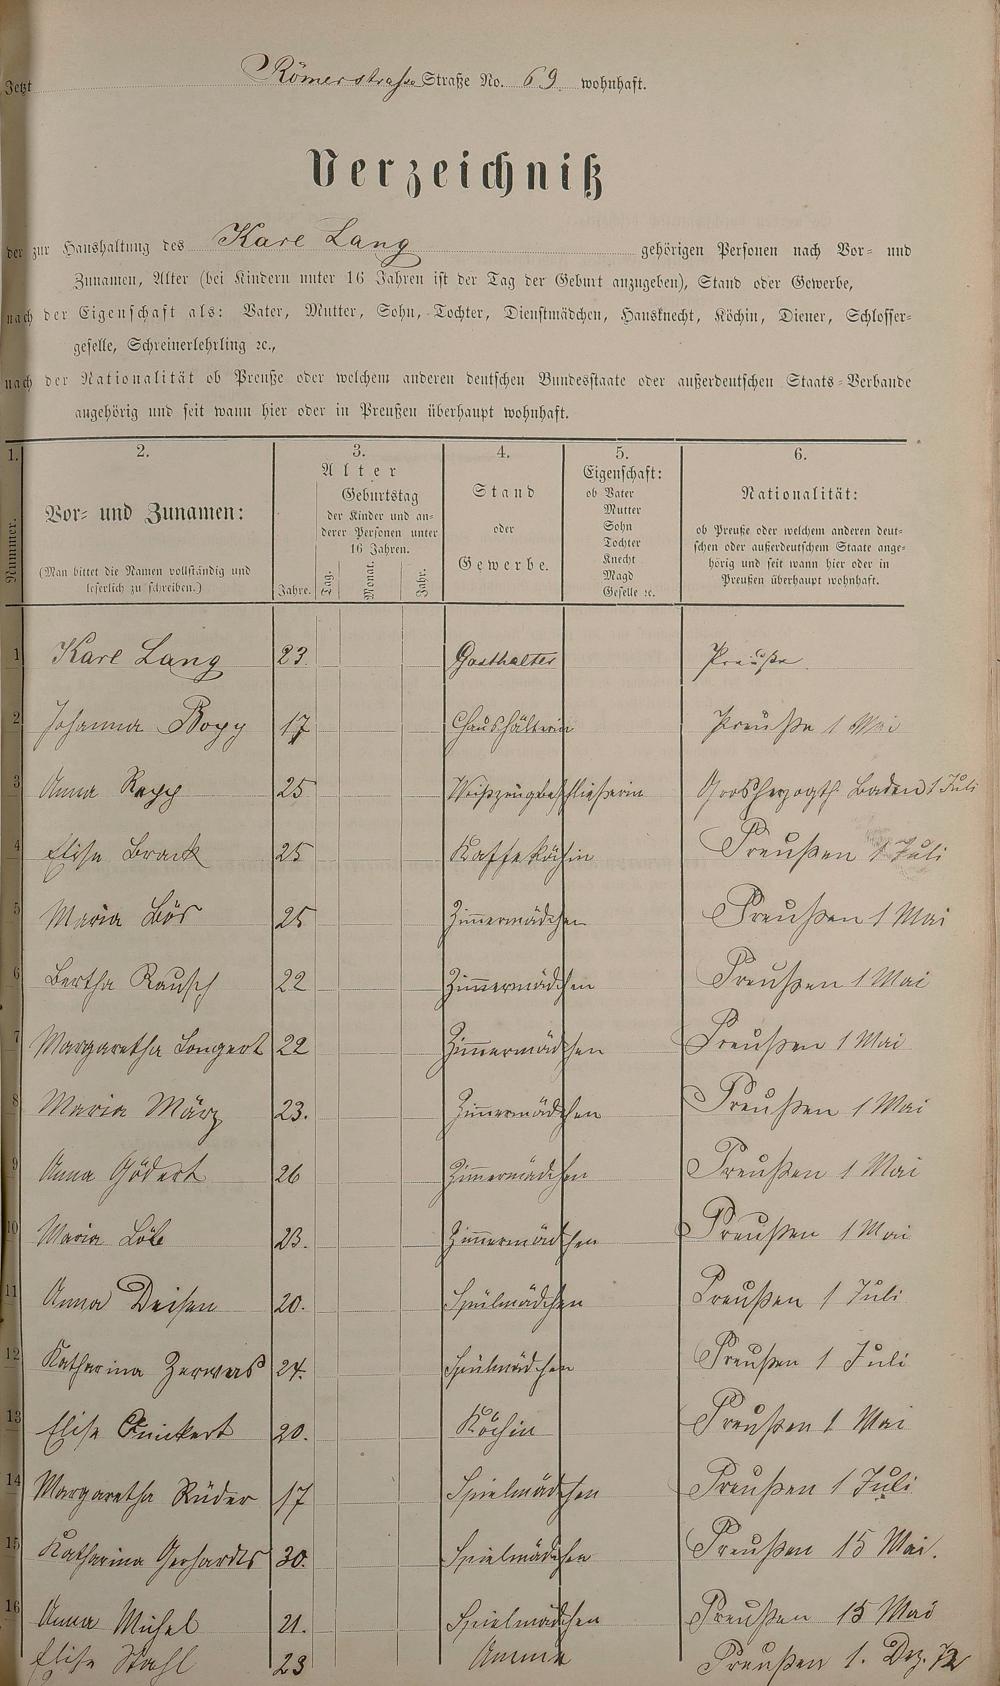 Jetzt Römerstraße Straße No. 69 wohnhaft.
Verzeichniß
der zur Haushaltung des Karl Lang gehörigen Personen nach Vor- und
Zunamen, Alter (bei Kindern unter 16 Jahren ist der Tag der Geburt anzugeben), Stand oder Gewerbe,
nach der Eigenschaft als: Vater, Mutter, Sohn, Tochter, Dienstmädchen, Hausknecht, Köchin, Diener, Schlosser-
geselle, Schreinerlehrling ꝛc.,
nach der Nationalität ob Preuße oder welchem anderen deutschen Bundesstaate oder außerdeutschen Staats-Verbande
angehörig und seit wann hier oder in Preußen überhaupt wohnhaft.
1.
Nummer.
2.
Vor- und Zunamen:
(Man bittet die Namen vollständig und
leserlich zu schreiben.)
3.
Alter
Geburtstag
der Kinder und an-
derer Personen unter
16 Jahren.
Jahre. Tag. Monat. Jahr.
4.
Stand
oder
Gewerbe.
5.
Eigenschaft:
ob Vater
Mutter
Sohn
Tochter
Knecht
Magd
Geselle ꝛc.
6.
Nationalität:
ob Preuße oder welchem anderen deut-
schen oder außerdeutschem Staate ange-
hörig und seit wann hier oder in
Preußen überhaupt wohnhaft.
1 Karl Lang 23 Gasthalter Preuße
2 Johanna 17 Haushälterin Preuße 1 Mai
3 Anna Repp 25 Weißzeugbeschließerin Grosherzogth Baden 1 Juli
4 Elise Brack 25 Kaffeköchin Preußen 1 Juli
5 Maria Bös 25 Zimmermädchen Preußen 1 Mai
6 Bertha Rausch 22 Zimmermädchen Preußen 1 Mai
7 Margaretha Longert 22 Zimmermädchen Preußen 1 Mai
8 Maria März 23. Zimmermädchen Preußen 1 Mai
9 Anna Gödert 26 Zimmermädchen Preußen 1 Mai
10 Maria Löb 23. Zimmermädchen Preußen 1 Mai
11 Anna Deisen 20. Spülmädchen Preußen 1 Juli
12 Katharina Zerwas 24. Spülmädchen Preußen 1 Juli
13 Elise 20. Köchin Preußen 1 Mai
14 Margaretha Rüder 17 Spielmädchen Preußen 1 Juli
15 Katharina Gerhardts 30. Spielmädchen Preußen 15 Mai.
16 Anna Michel 21. Spielmädchen Preußen 15 Mai
Elise Stahl 23 Amme Preußen 1. Dez. 72